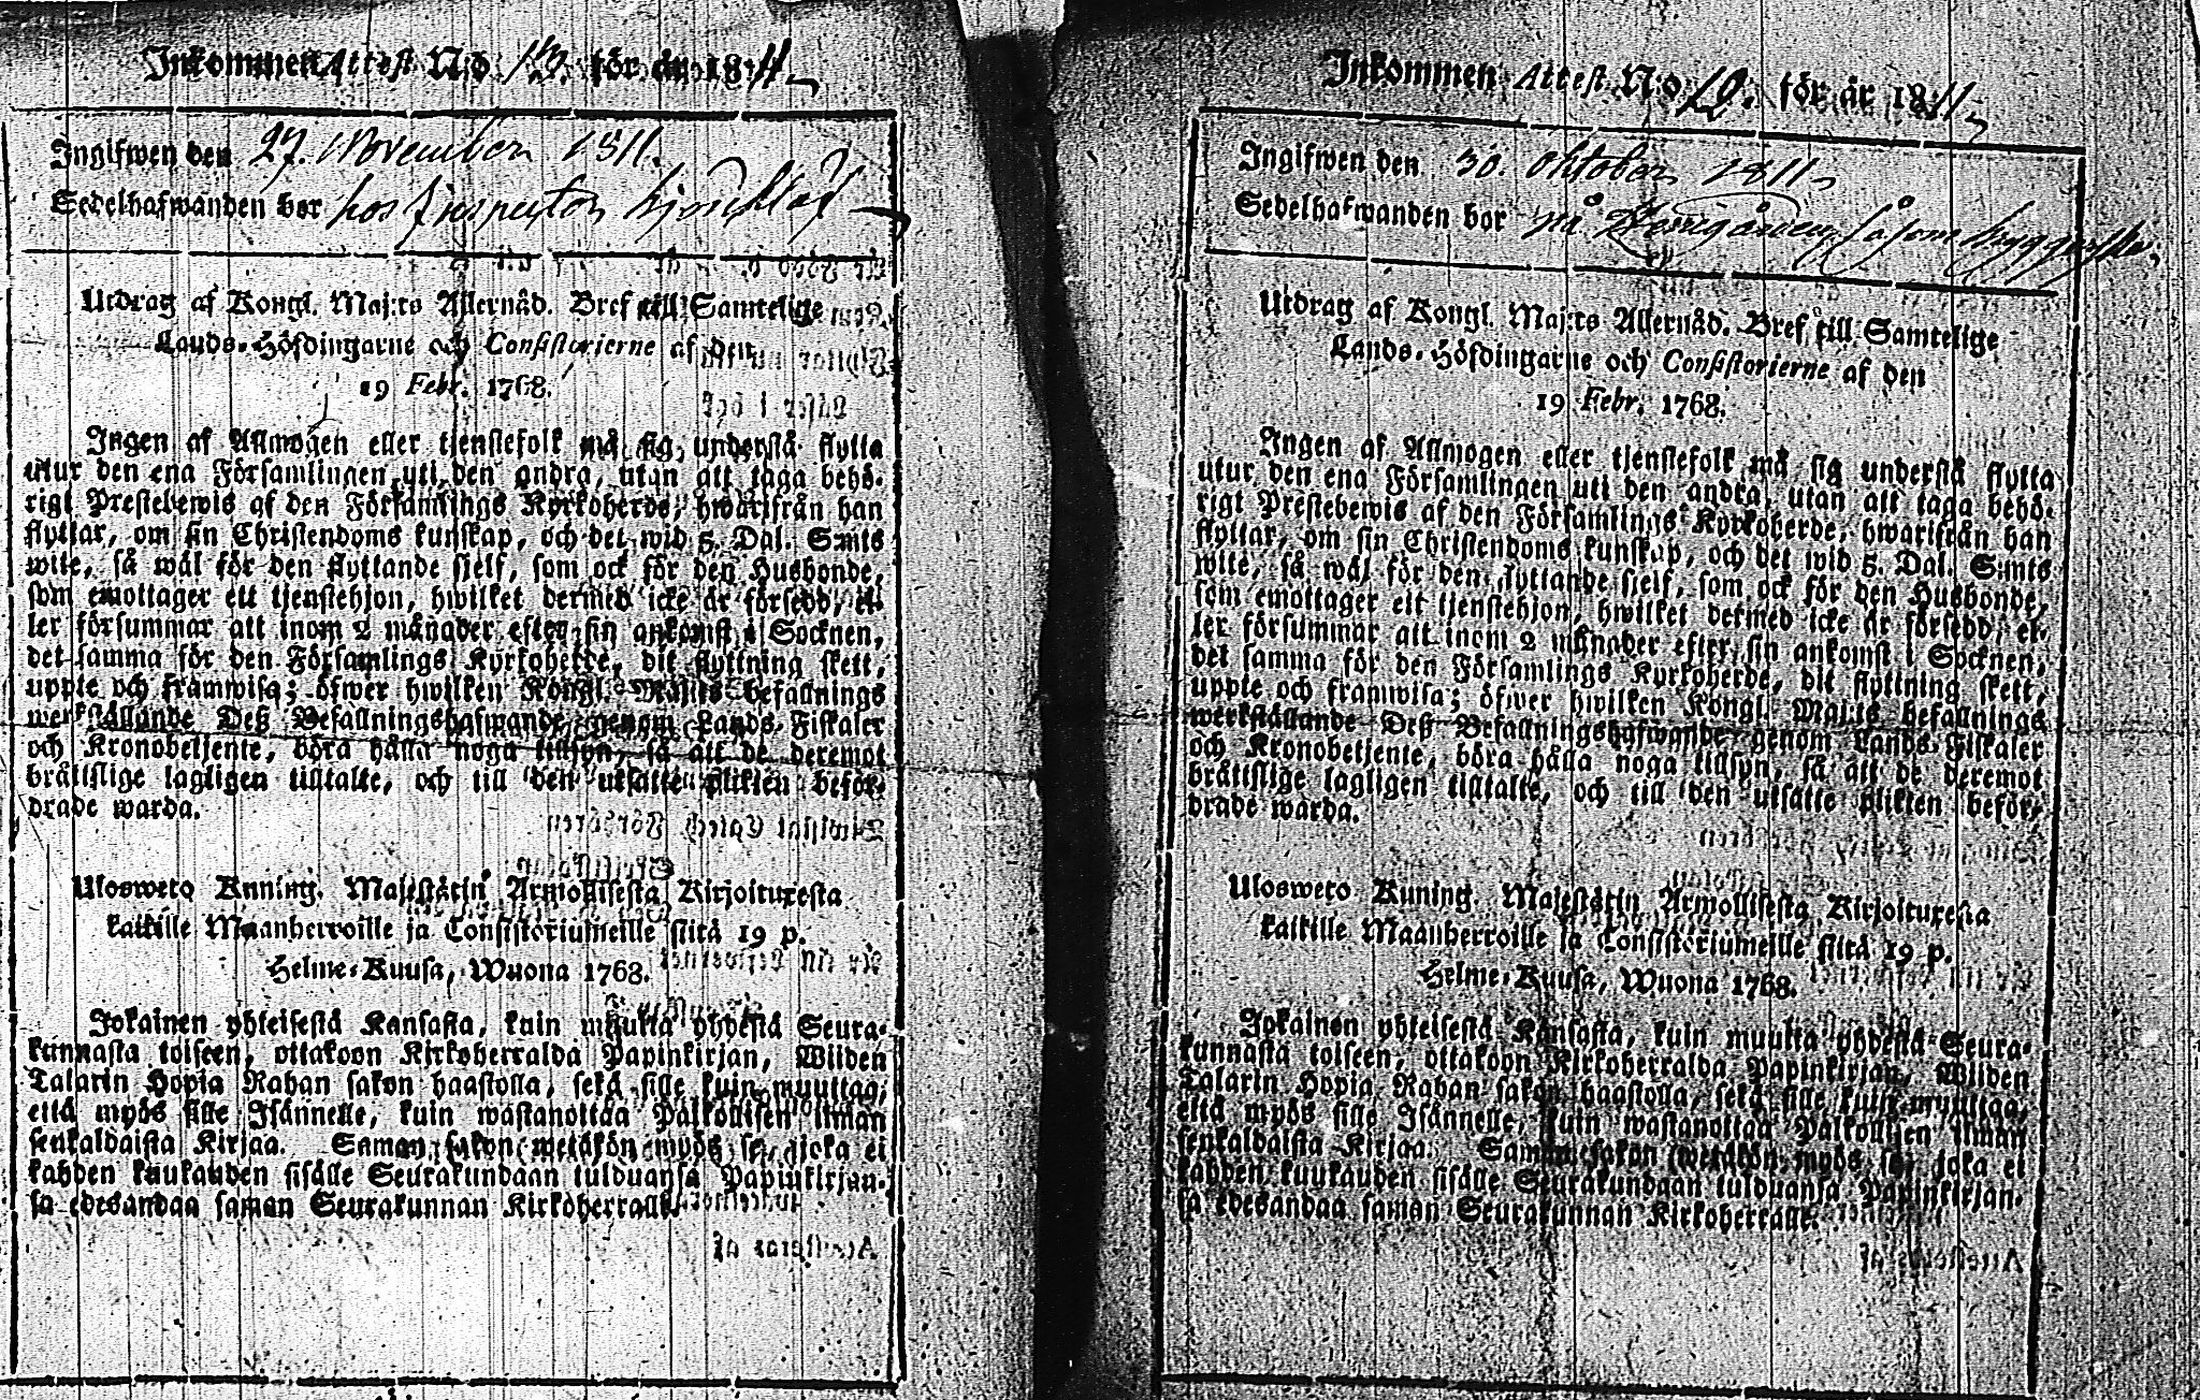 Inkommen Attest N:o för år 1811
Ingifwen den 27. November 1811.
Sedelhafwanden bor hos Inspector
Utdrag af Kongl. Maj:ts Allernåd. Bref till Samtelige
Lands-Höfdingarne och Consistorierne af den
19 Febr. 1768.
Ingen af Allmogen eller tjenstefolk må sig understå flytta
utur den ena Församlingen uti den andra, utan att taga behö-
rigt Prestebewis af den Församlings Kyrkoherde, hwarifrån han
flyttar, om sin Christendoms kunskap, och det wid 5. Dal. S:mts
wite, så wäl för den flyttande sjelf, som ock för den Husbonde,
som emottager ett tjenstehjon, hwilket dermed icke är försedd, el-
ler försummar att inom 2 månader efter sin ankomst i Socknen,
det samma för den Församlings Kyrkoherde, dit flyttning skett,
uppte och framwisa; öfwer hwilken Kongl. Maj:ts befallnings
werkställande Deß Befallningshafwande genom Lands-Fiskaler
och Kronobetjente, böra hålla noga tillsyn, så att de deremot
bråttslige lagligen tilltalte, och till den utsatte plikten beför-
drade warda.
Ulosweto Kuning. Majestätin Armollisesta Kirjoituxesta
kaikille Maanherroille ja Consistoriumeille siitä 19 p.
Helme-Kuusa, Wuona 1768.
Jokainen yhteisestä Kansasta, kuin muutta yhdestä Seura-
kunnasta toiseen, ottakoon Kirkoherralda Papinkirjan, Wiiden
Talarin Hopia Rahan sakon haastolla, sekä sille kuin muuttaa,
että myös sille Isännelle, kuin wastanottaa Palkollisen ilman
senkaldaista Kirjaa. Saman sakon wetäkön myös se, joka ei
kahden kuukauden sisälle Seurakundaan tulduansa Papinkirjan-
sa edesandaa saman Seurakunnan Kirkoherralle.
Inkommen Attest N:o 12. för år 1811
Ingifwen den 30. Oktober 1811
Sedelhafwanden bor på såsom bryggerska
Utdrag af Kongl. Maj:ts Allernåd. Bref till Samtelige
Lands-Höfdingarne och Consistorierne af den
19 Febr. 1768.
Ingen af Allmogen eller tjenstefolk må sig understå flytta
utur den ena Församlingen uti den andra, utan att taga behö-
rigt Prestebewis af den Församlings Kyrkoherde, hwarifrån han
flyttar, om sin Christendoms kunskap, och det wid 5. Dal. S:mts
wite, så wäl för den flyttande sjelf, som ock för den Husbonde,
som emottager ett tjenstehjon, hwilket dermed icke är försedd, el-
ler försummar att inom 2 månader efter sin ankomst i Socknen,
det samma för den Församlings Kyrkoherde, dit flyttning skett,
uppte och framwisa; öfwer hwilken Kongl. Maj:ts befallnings
werkställande Deß Befallningshafwande genom Lands-Fiskaler
och Kronobetjente, böra hålla noga tillsyn, så att de deremot
bråttslige lagligen tilltalte, och till den utsatte plikten beför-
drade warda.
Ulosweto Kuning. Majestätin Armollisesta Kirjoituxesta
kaikille Maanherroille ja Consistoriumeille siitä 19 p.
Helme-Kuusa, Wuona 1768.
Jokainen yhteisestä Kansasta, kuin muutta yhdestä Seura-
kunnasta toiseen, ottakoon Kirkoherralda Papinkirjan, Wiiden
Talarin Hopia Rahan sakon haastolla, sekä sille kuin muuttaa,
että myös sille Isännelle, kuin wastanottaa Palkollisen ilman
senkaldaista Kirjaa. Saman sakon wetäkön myös se, joka ei
kahden kuukauden sisälle Seurakundaan tulduansa Papinkirjan-
sa edesandaa saman Seurakunnan Kirkoherralle.